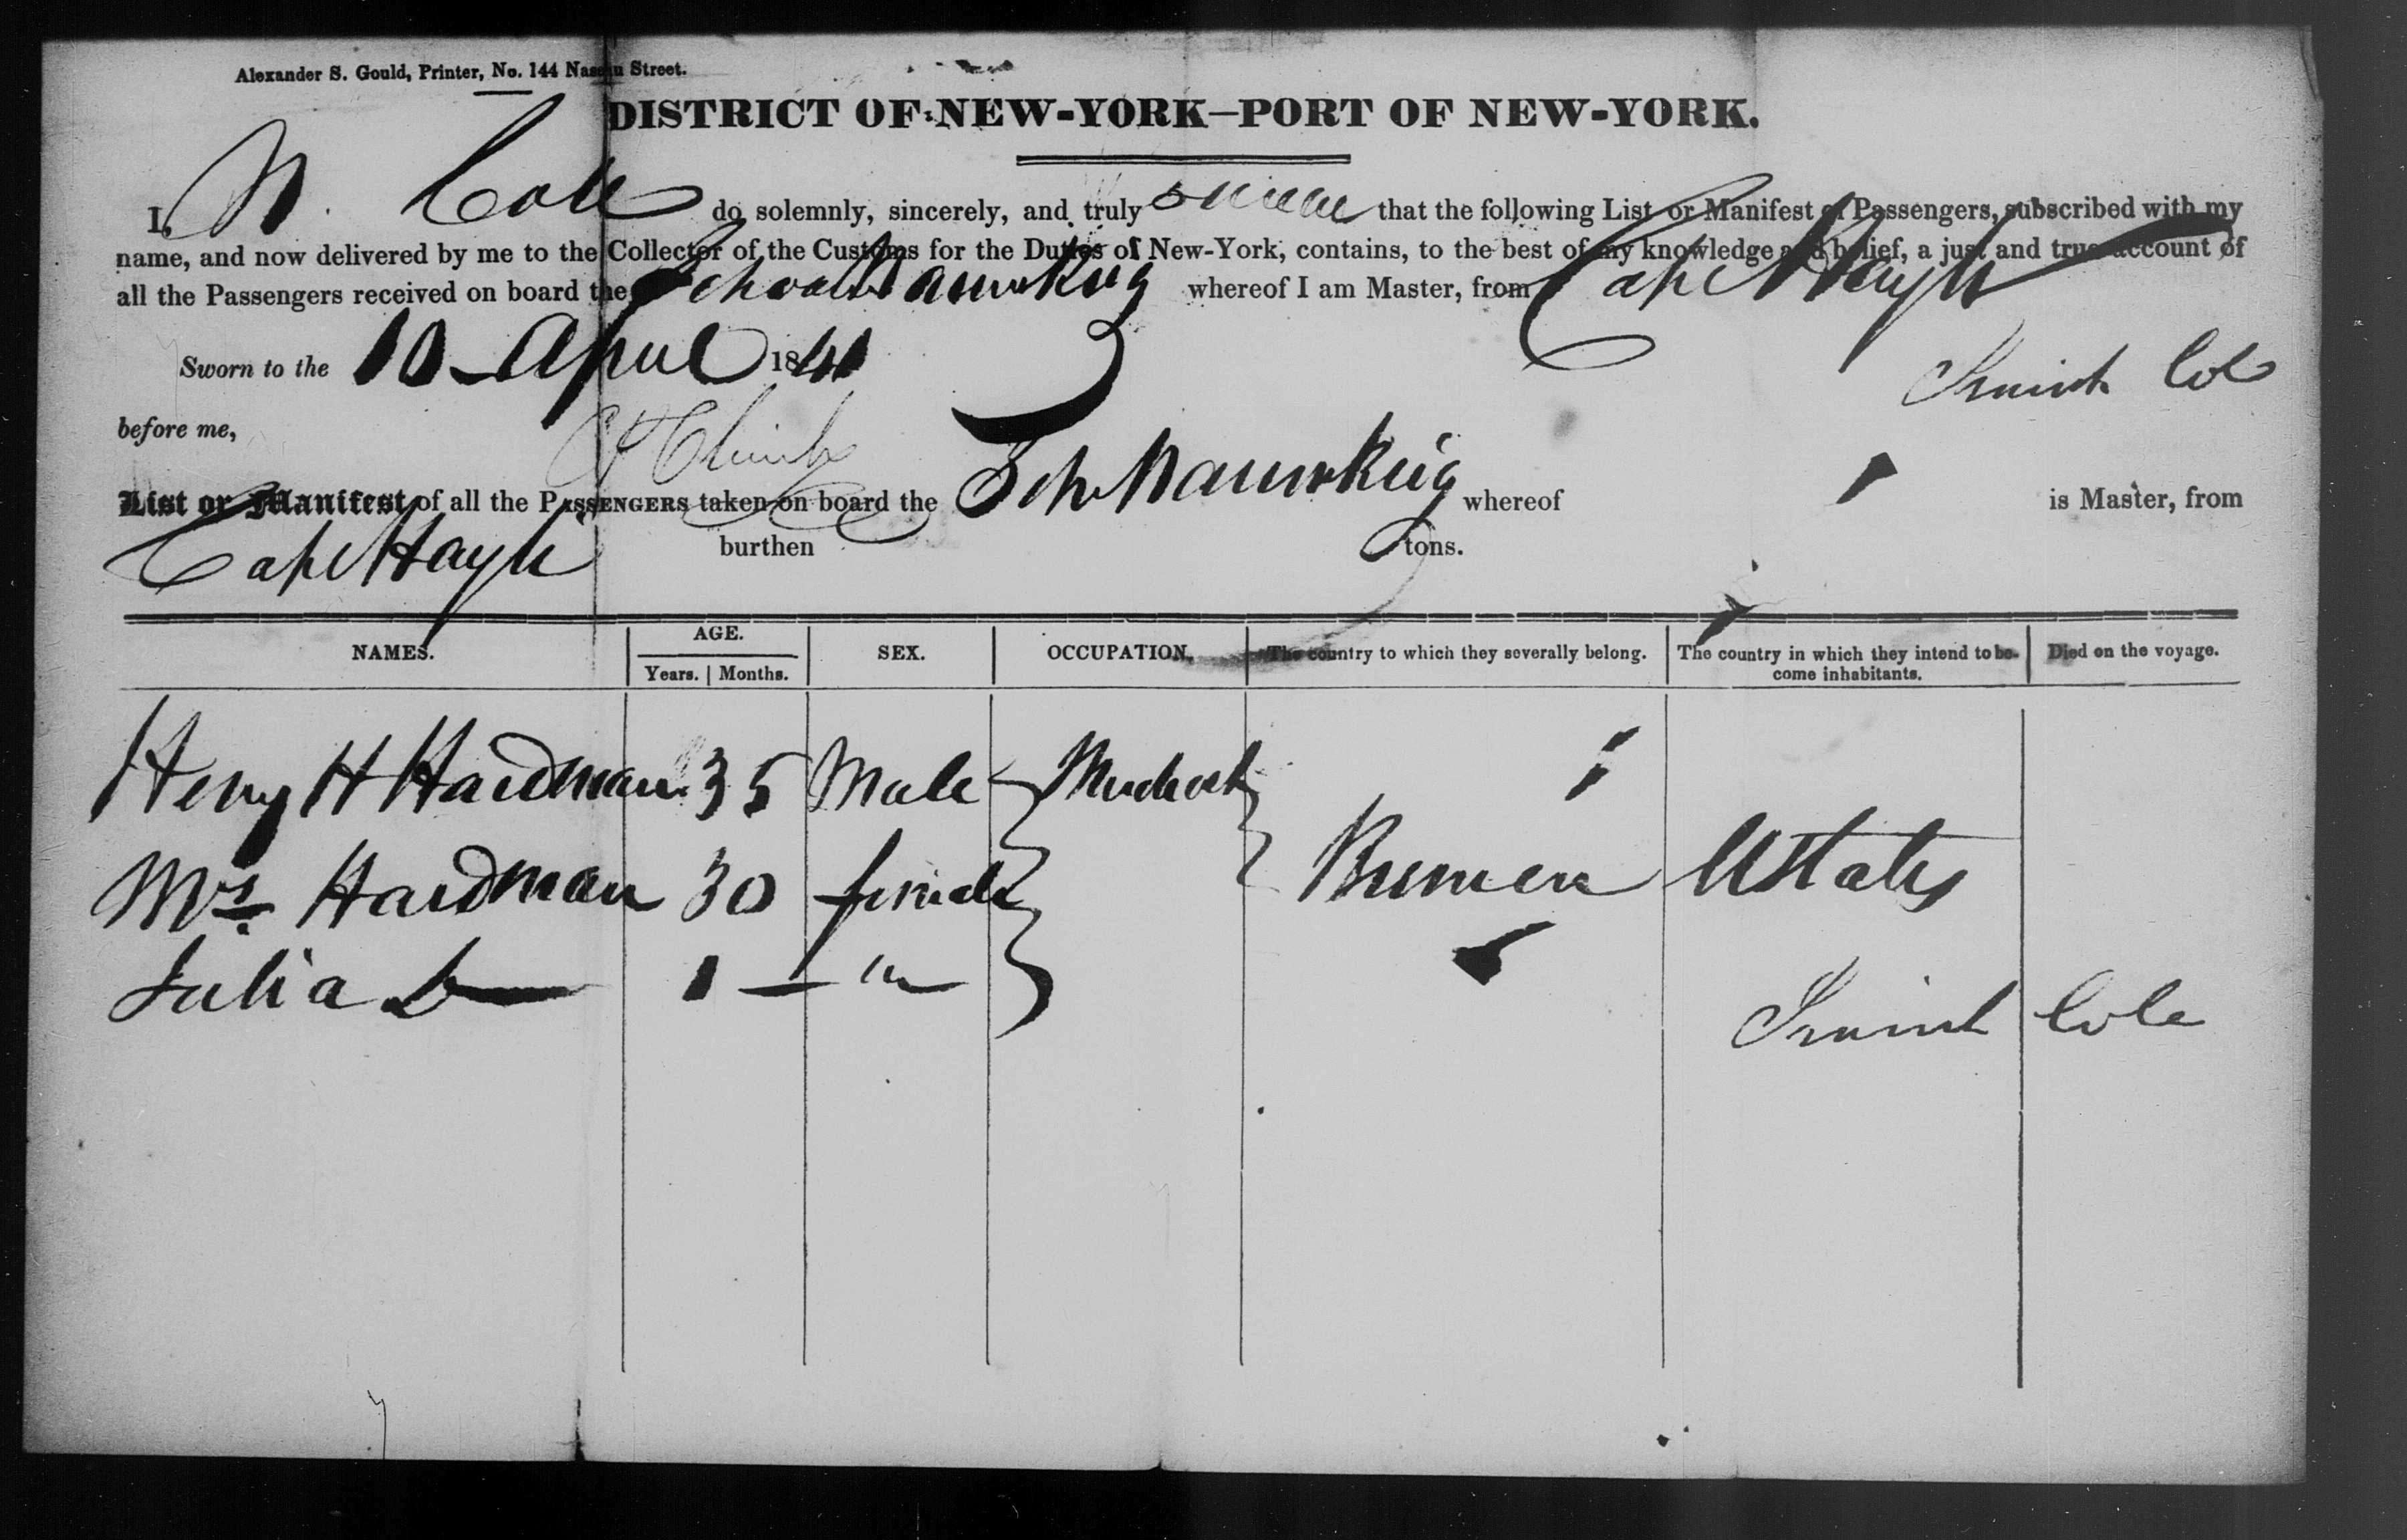 Alexander S. Gould, Printer, No. 144 Nassau Street.
DISTRICT OF NEW-YORK—PORT OF NEW-YORK.
I, Cole do solemnly, sincerely, and truly swear that the following List or Manifest of Passengers, subscribed with my
name, and now delivered by me to the Collector of the Customs for the Duties of New-York, contains, to the best of my knowledge and belief, a just and true account of
all the Passengers received on board the whereof I am Master, from Cape Hayti
Sworn to the 10 April 1841
Cole
before me,
List or Manifest of all the PASSENGERS taken on board the Sch whereof is Master, from
Cape Hayti burthen tons.
NAMES. AGE. Years. Months. SEX. OCCUPATION. The country to which they severally belong. The country in which they intend to become inhabitants. Died on the voyage.
Henry H Hardman 35 Male Merchant
Mrs. Hardman 30 female Bremen UStates
Julia Do 1 — "
Cole